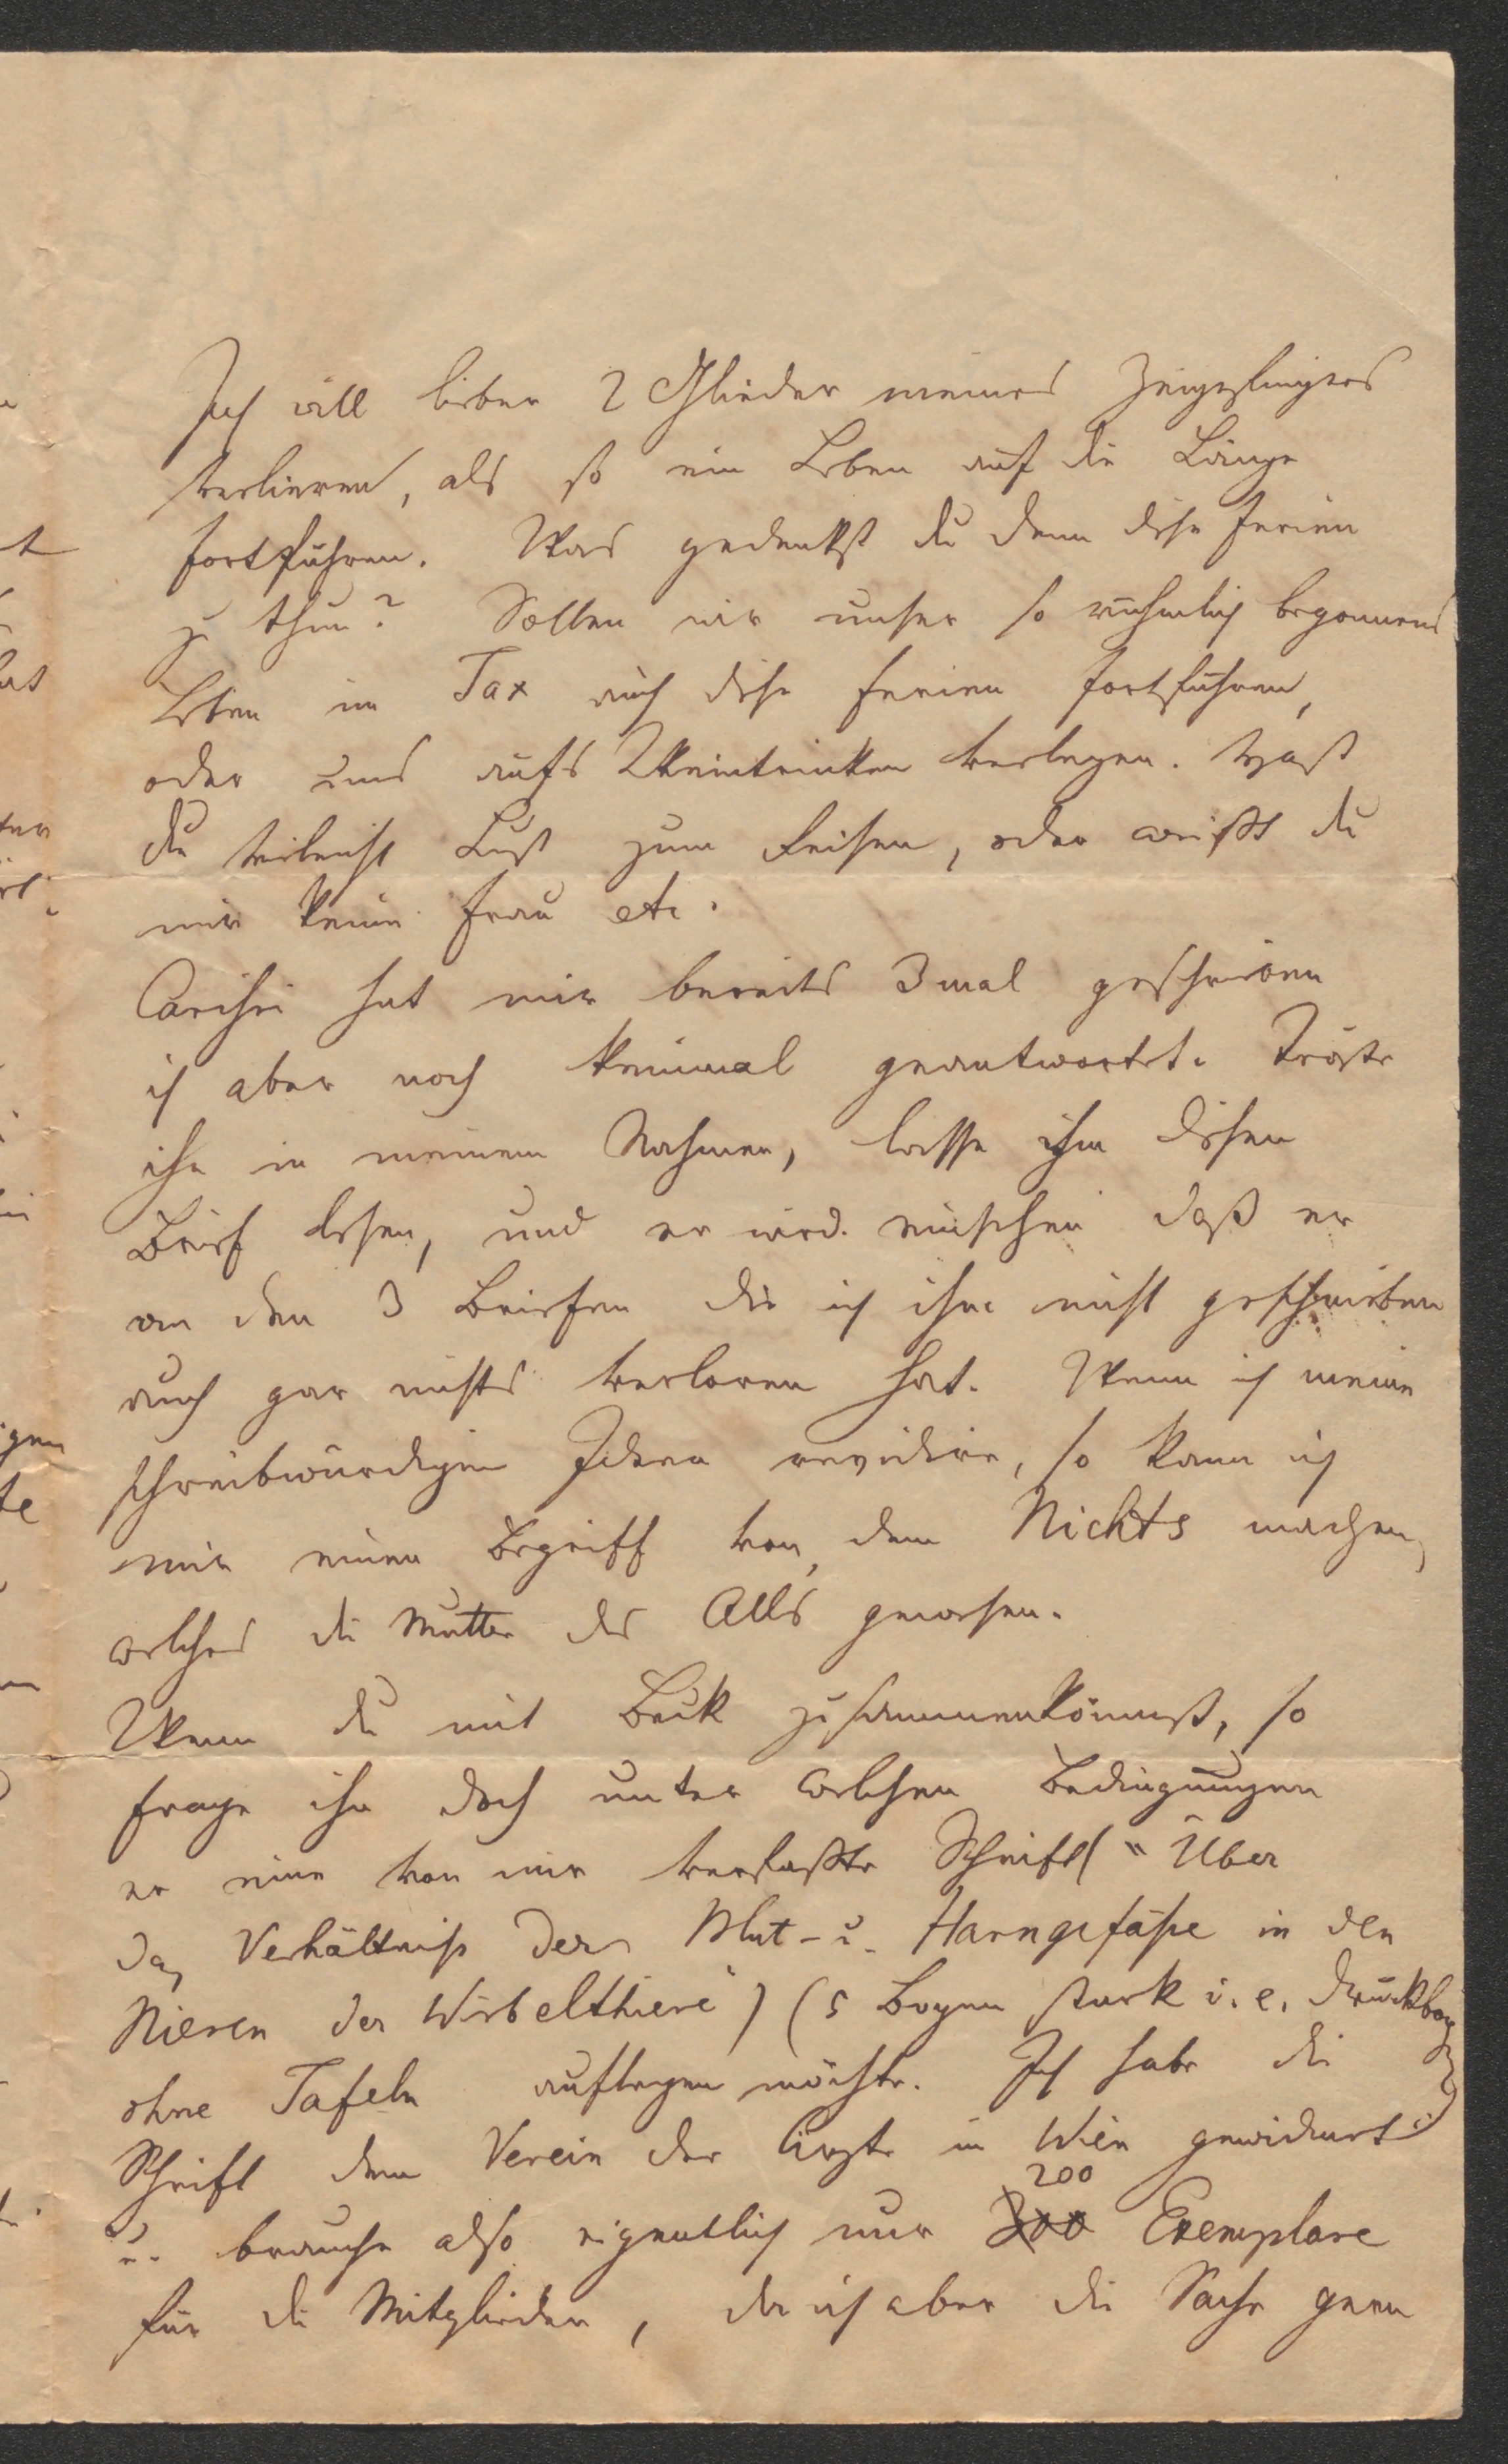 Ich will lieber 2 Glieder meines Zeigefingers
verlieren, als so ein Leben auf die Länge
fortführen. Was gedenkst du denn diese Ferien
zu thun? Sollen wir unser so rühmlich begonnenes
Leben im Tax auch diese Ferien fortführen,
oder uns aufs Weintrinken verlegen. Hast
du vileicht Lust zum Reisen, oder weißt du
mir keine Frau etc.
hat mir bereits 3 mal geschrieben
ich aber noch keinmal geantwortet. Tröste
ihn in meinem Nahmen, lasse ihn disen
Brief lesen, und er wird einsehen daß er
an den 3 Briefen die ich ihm nicht geschrieben
auch gar nichts verloren hat. Wenn ich meine
schreibwürdigen Ideen revidire, so kann ich
mir einen Begriff von dem Nichts machen,
welches die Mutter des Alls gewesen.
Wenn du mit Beck zusammenkömmst, so
frage ihn doch unter welchen Bedingungen
er eine von mir verfaßte Schrift ( "Über
das Verhältniß der Blut- u. Harngefäße in den
Nieren der Wirbelthiere") (5 Bogen stark i. e. Druckbogen
ohne Tafeln auflegen möchte. Ich habe die
Schrift dem Verein der Ärzte in Wien gewidmet
200
u. brauche also eigentlich nur 300 Exemplare
für die Mitglieder, da ich aber die Sache gern